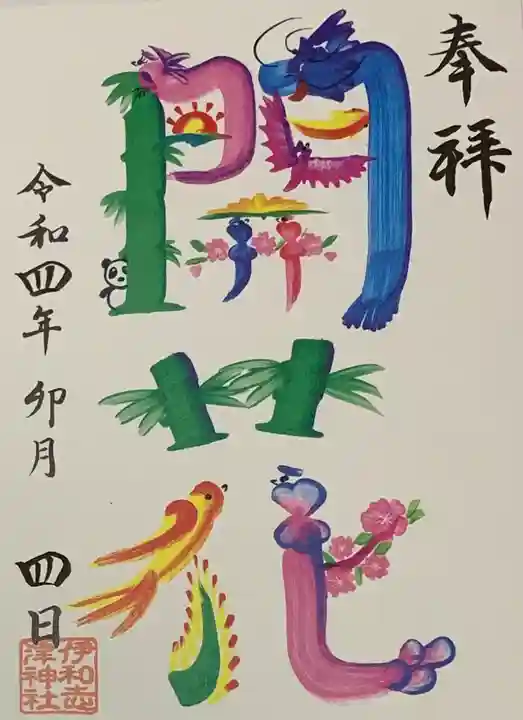 奉拝
開花
令和四年 卯月 四日
伊和志
津神社